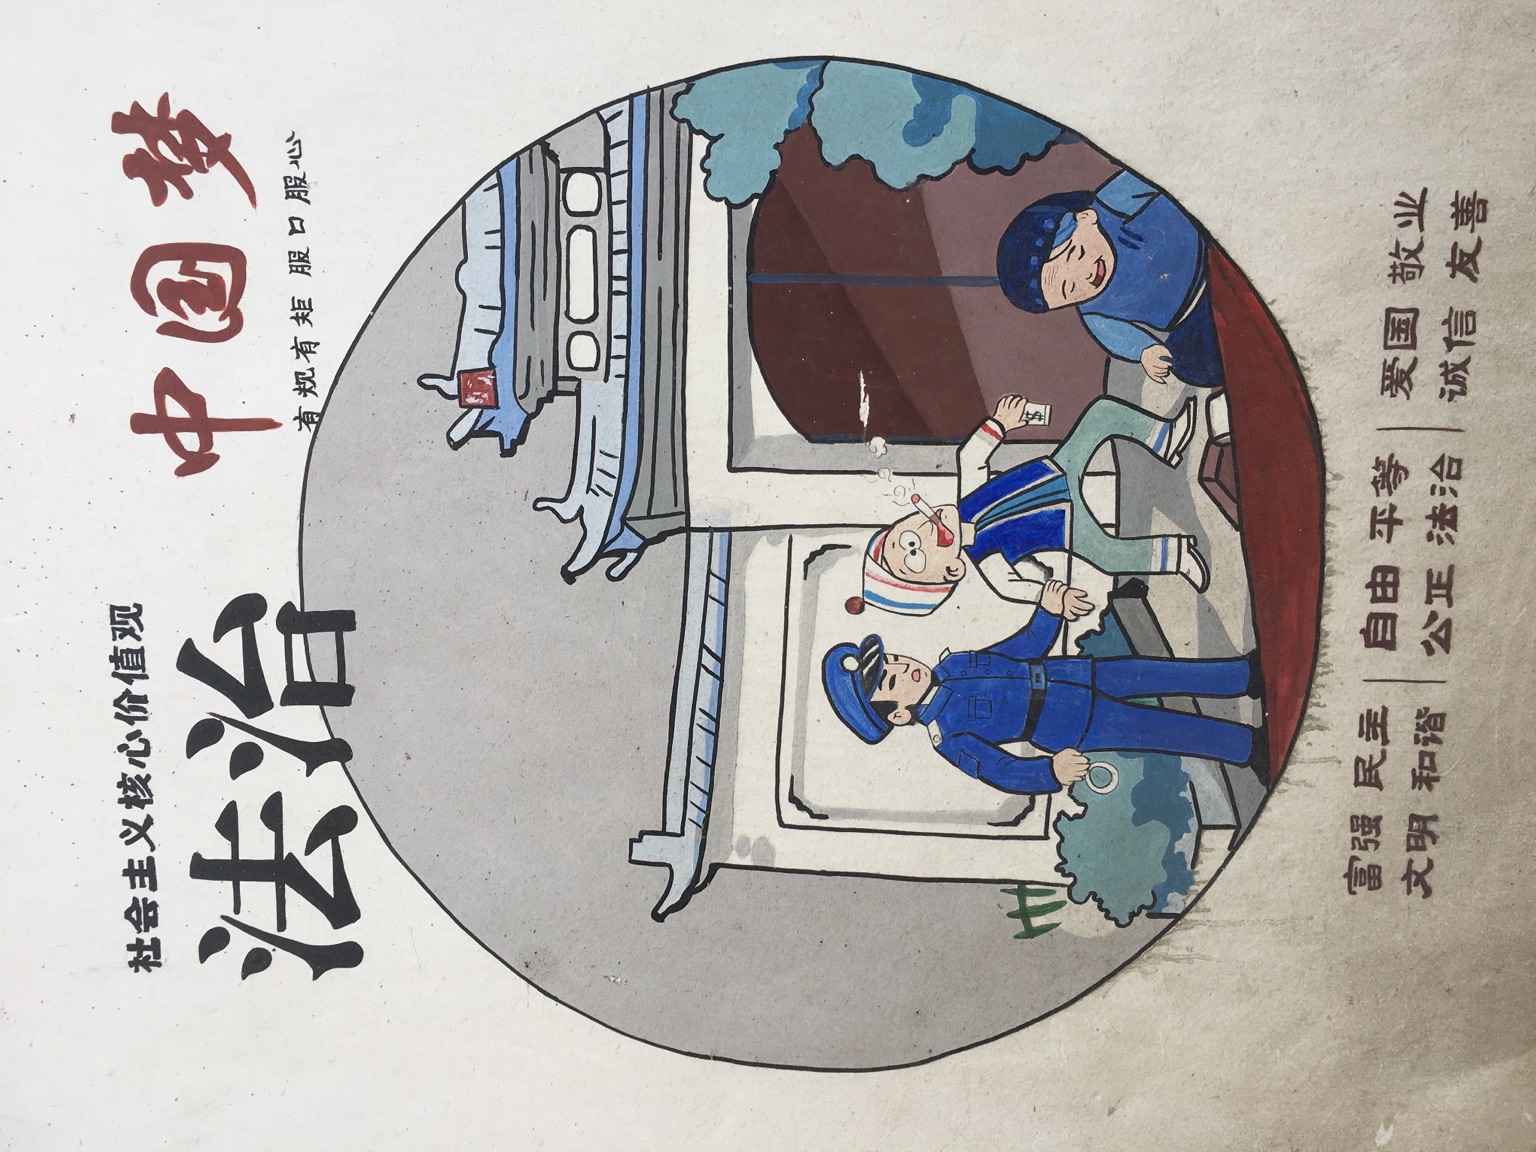 社会主义核心价值观
法治
中国梦
有规有矩 服口服心
$
富强 民主
文明 和谐
自由 平等
公正 法治
爱国 敬业
诚信 友善